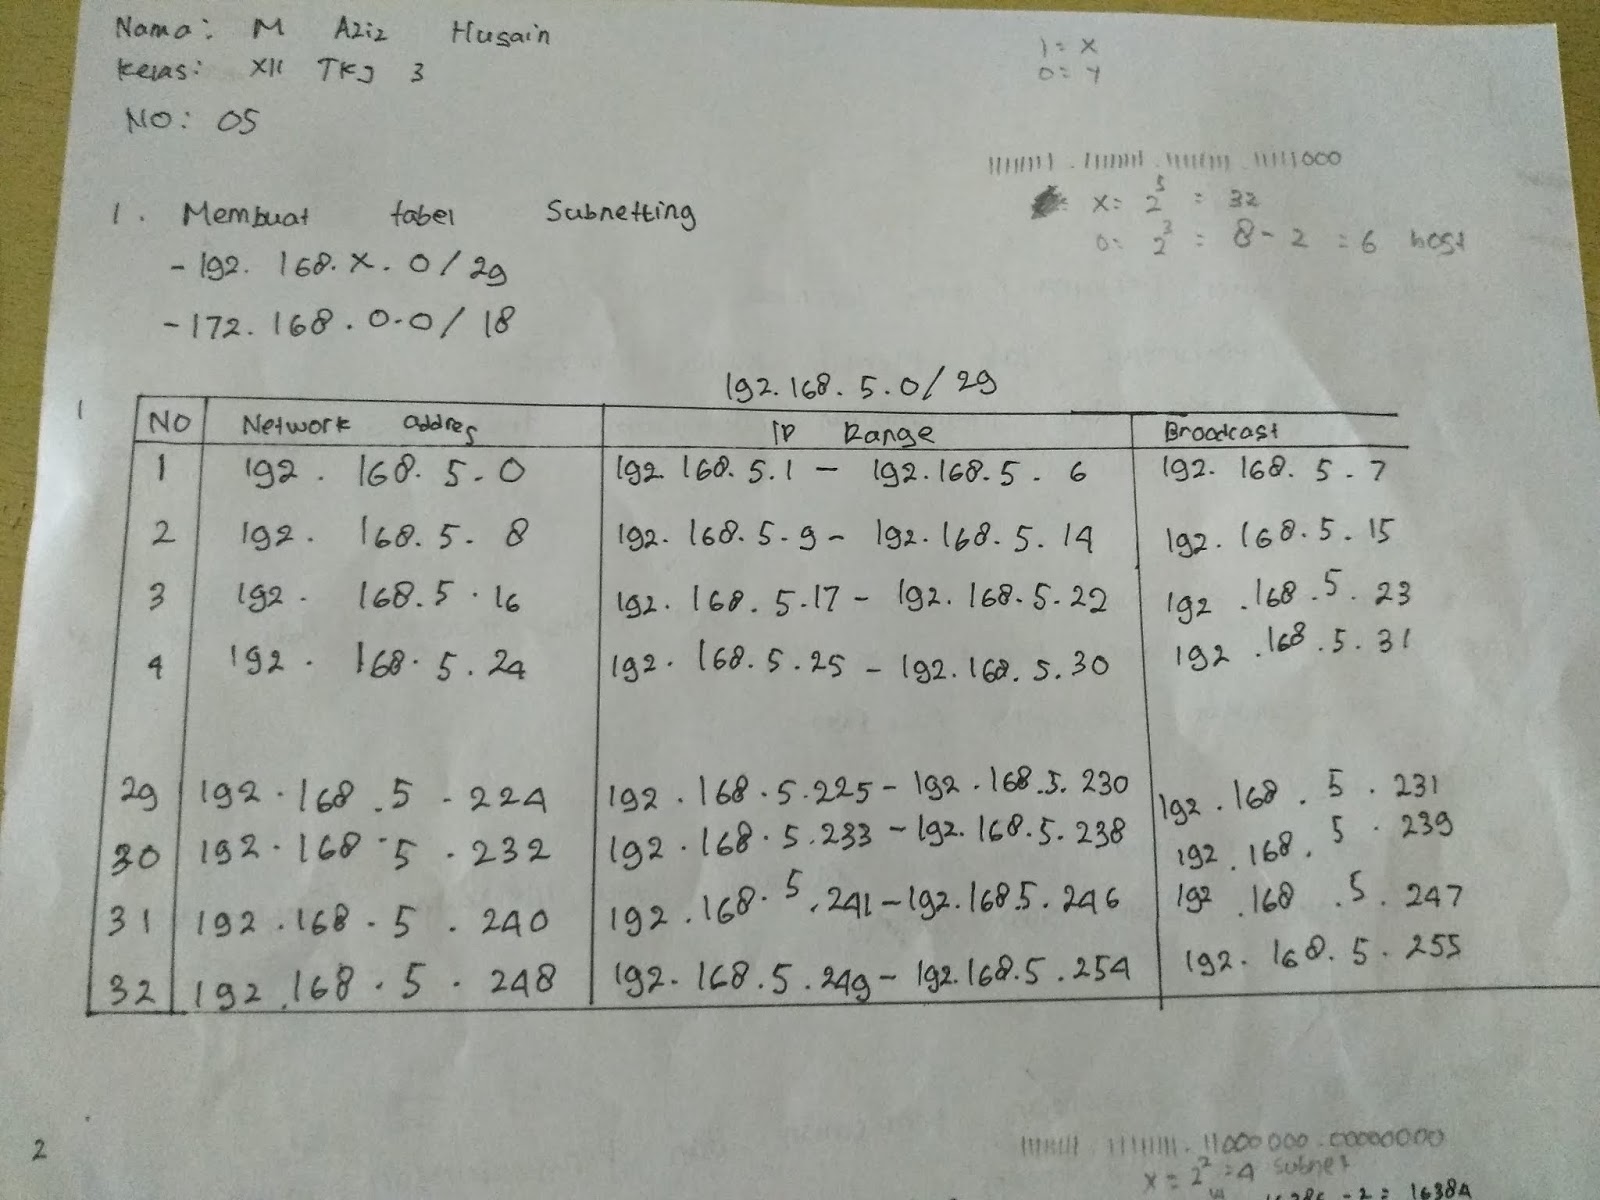 Nama: M Aziz Husain
Kelas: XII TKJ 3
NO: 05
1 = X
0 = Y
11111111.11111111.11111111.11111000
X = 2^5 = 32
0 = 2^3 = 8 - 2 = 6 host
1. Membuat tabel Subnetting
- 192. 168. X. 0 / 29
- 172. 168. 0. 0 / 18
192.168.5.0/29
1
NO Network addres IP Range Broadcast
1 192. 168. 5. 0 192.168.5.1 - 192.168.5.6 192.168.5.7
2 192. 168. 5. 8 192.168.5.9 - 192.168.5.14 192.168.5.15
3 192. 168. 5. 16 192.168.5.17 - 192.168.5.22 192.168.5.23
4 192. 168. 5. 24 192.168.5.25 - 192.168.5.30 192.168.5.31
29 192.168.5.224 192.168.5.225 - 192.168.5.230 192.168.5.231
30 192.168.5.232 192.168.5.233 - 192.168.5.238 192.168.5.239
31 192.168.5.240 192.168.5.241 - 192.168.5.246 192.168.5.247
32 192.168.5.248 192.168.5.249 - 192.168.5.254 192.168.5.255
2
11111111.11111111.11000000.00000000
X = 2^2 = 4 subnet
- 2 = 16384